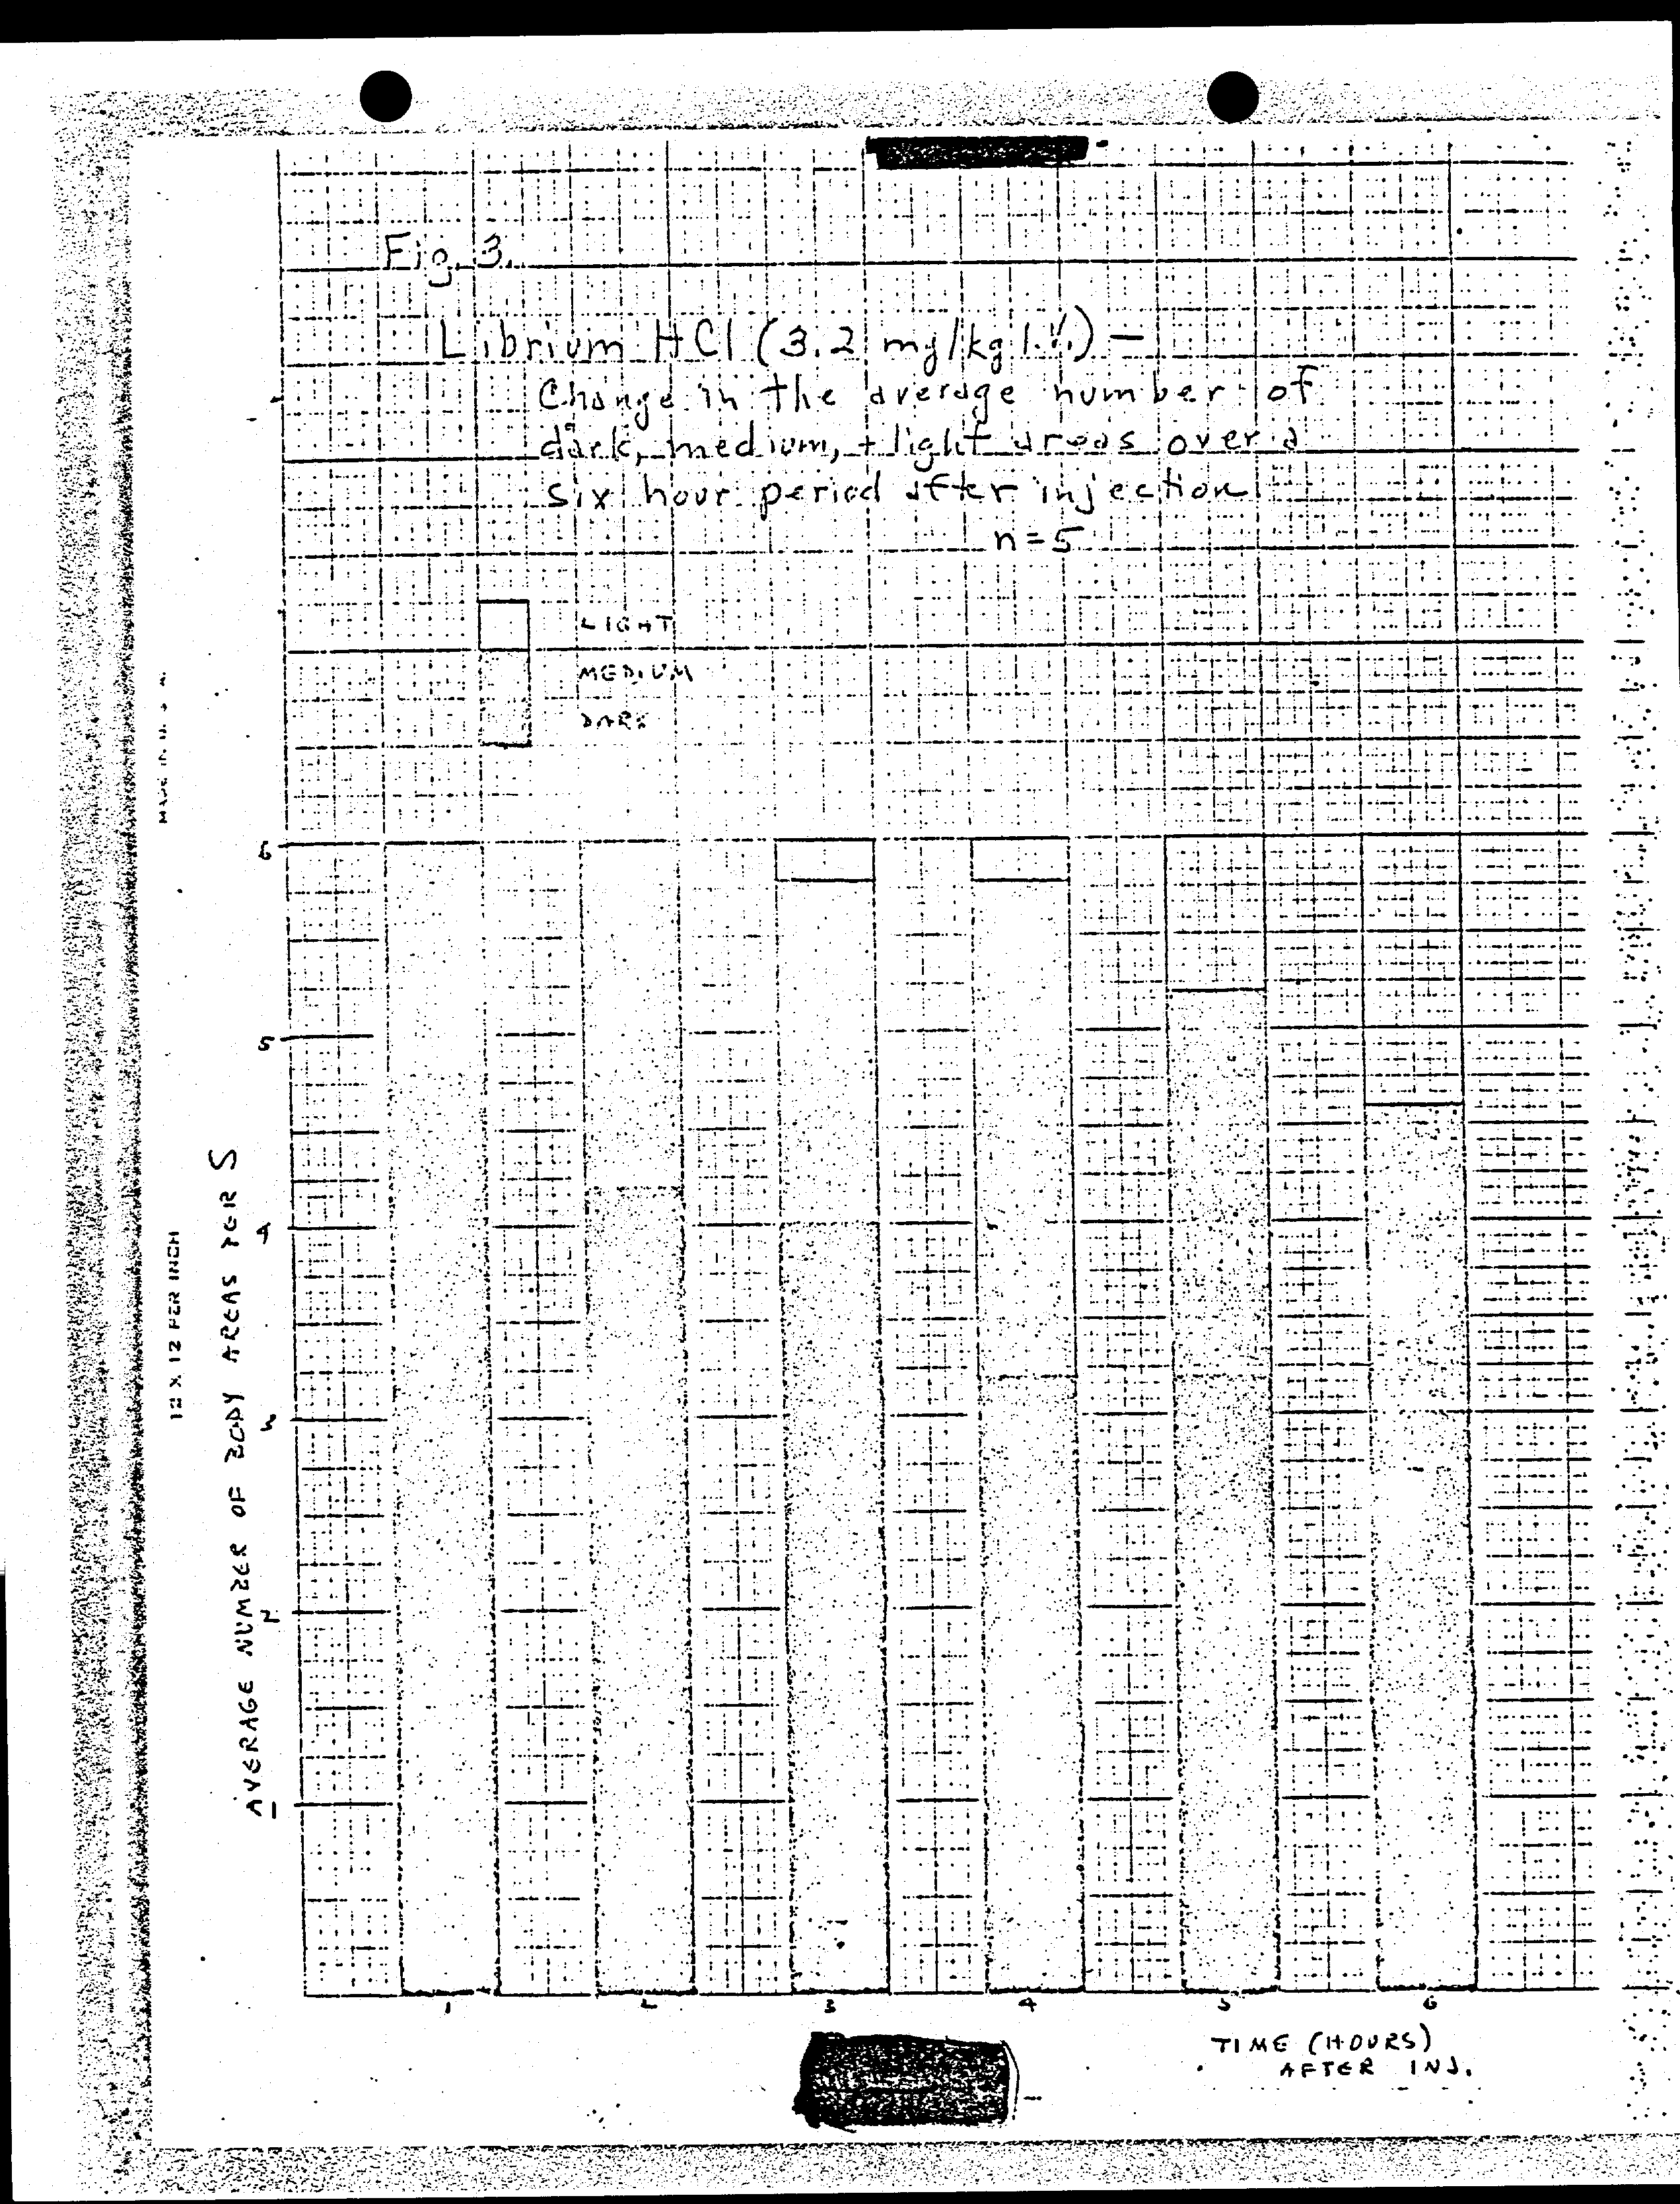 Fig. 3.
Librium HCl (3.2 mg/kg I.V.) —
Change in the average number of
dark, medium, + light areas over a
six hour period after injection
n = 5
LIGHT
MEDIUM
DARK
6
5
4
3
2
1
AVERAGE NUMBER OF BODY AREAS PER S
12 X 12 PER INCH
MADE IN U. S. A.
1 2 3 4 5 6
TIME (HOURS)
AFTER INJ.